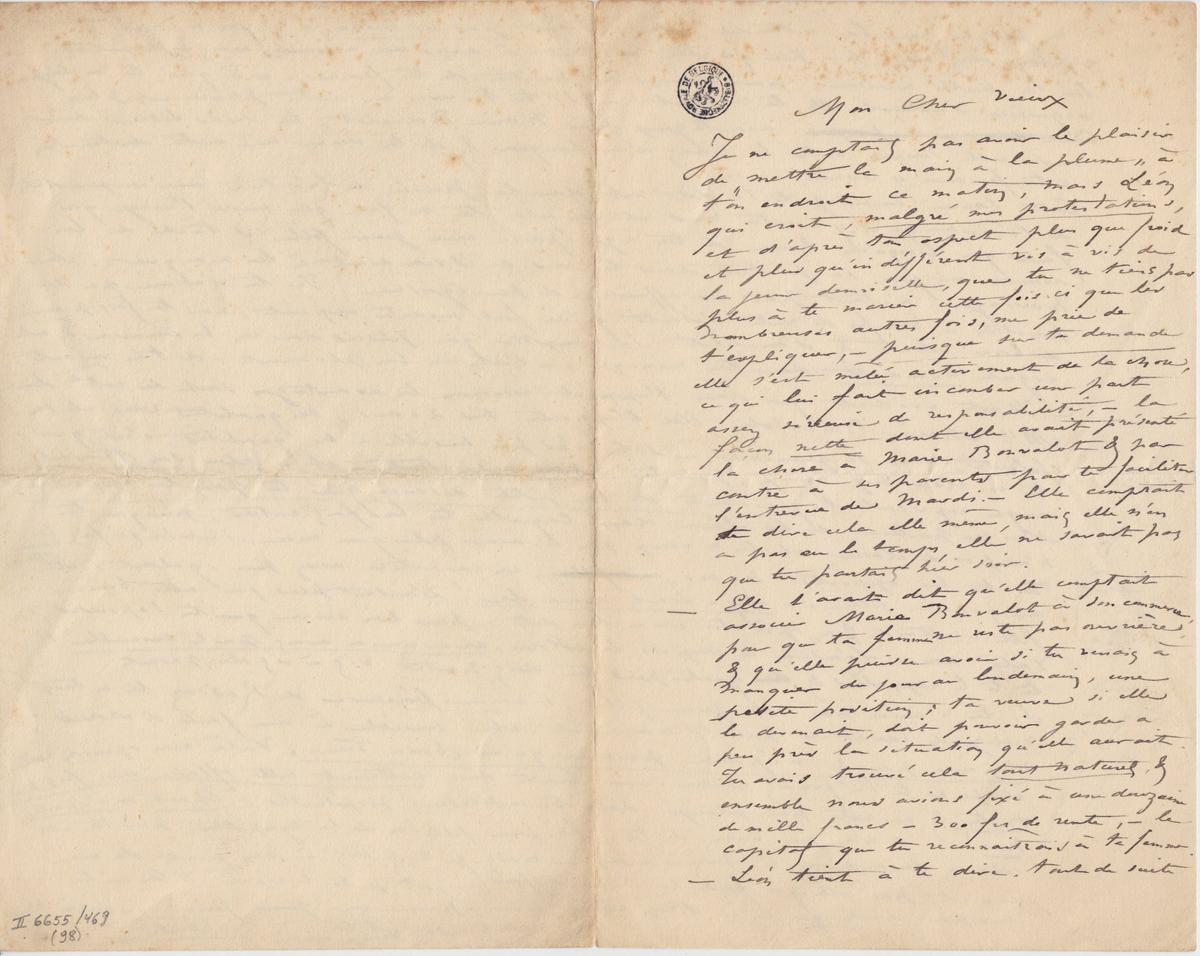 Mon Cher Vieux
Je ne comptais pas avoir le plaisir
de "mettre la main à la plume" à
ton endroit ce matin, mais Léon
qui croit, malgré mes protestations,
et d'après ton aspect plus que froid
et plus qu'indifférent vis à vis de
la jeune demoiselle, que tu ne tiens pas
plus à te marier cette fois-ci que les
nombreuses autres fois, me prie de
t'expliquer, – puisque sur ta demande
elle s'est mêlée activement de la chose,
ce qui lui fait incomber une part
assez sérieuse de responsabilité, – la
façon nette dont elle avait présenté
la chose à Marie Bonvalot & par
contre à ses parents pour te faciliter
l'entrevue de Mardi. – Elle comptait
te dire cela elle même, mais elle n'en
a pas eu le temps, elle ne savait pas
que tu partais hier soir.
– Elle t'avait dit qu'elle comptait
associer Marie Bonvalot à son commerce,
pour que ta femme ne reste pas ouvrière,
& qu'elle puisse avoir si tu venais à
manquer du jour au lendemain, une
petite position; ta veuve si elle
le devenait, doit pouvoir garder à
peu près la situation qu'elle aurait.
Tu avais trouvé cela tout naturel, &
ensemble nous avions fixé à une douzaine
de mille francs – 300 frs de rente, – le
capital que tu reconnaîtrais à ta femme.
– Léon tient à te dire tout de suite
II 6655/469
(98)